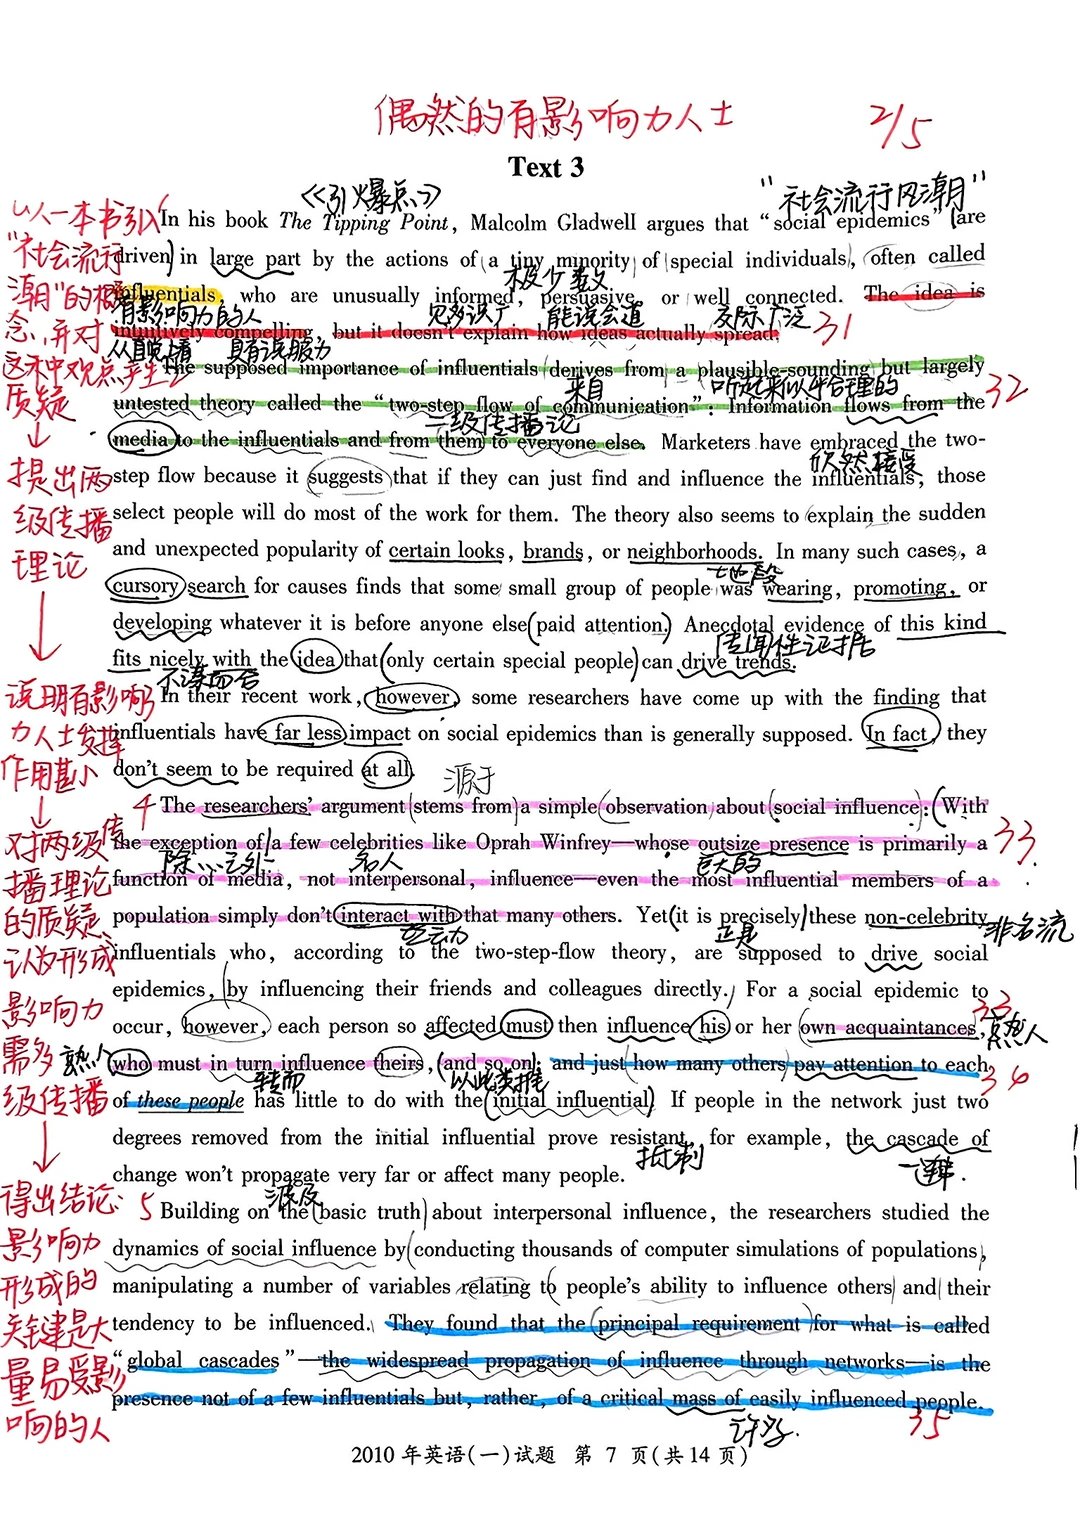 偶然的有影响力人士
2/5
Text 3
《引爆点》
"社会流行风潮"
In his book The Tipping Point, Malcolm Gladwell argues that “social epidemics” are
driven in large part by the actions of a tiny minority of special individuals, often called
极少数
influentials, who are unusually informed, persuasive, or well connected. The idea is
有影响力的人 见多识广 能说会道 交际广泛 31
intuitively compelling, but it doesn't explain how ideas actually spread.
从直觉上看 具有说服力
The supposed importance of influentials derives from a plausible-sounding but largely
来自 听起来似乎合理的 32
untested theory called the “two-step flow of communication”: Information flows from the
二级传播论
media to the influentials and from them to everyone else. Marketers have embraced the two-
欣然接受
step flow because it suggests that if they can just find and influence the influentials, those
select people will do most of the work for them. The theory also seems to explain the sudden
and unexpected popularity of certain looks, brands, or neighborhoods. In many such cases, a
地段
cursory search for causes finds that some small group of people was wearing, promoting, or
developing whatever it is before anyone else paid attention. Anecdotal evidence of this kind
传闻性证据
fits nicely with the idea that only certain special people can drive trends.
不谋而合
In their recent work, however, some researchers have come up with the finding that
influentials have far less impact on social epidemics than is generally supposed. In fact, they
don't seem to be required at all.
源于
4 The researchers' argument stems from a simple observation about social influence: With
33
the exception of a few celebrities like Oprah Winfrey—whose outsize presence is primarily a
除……之外 名人 巨大的
function of media, not interpersonal, influence—even the most influential members of a
population simply don't interact with that many others. Yet it is precisely these non-celebrity
互动 正是 非名流
influentials who, according to the two-step-flow theory, are supposed to drive social
epidemics, by influencing their friends and colleagues directly. For a social epidemic to
33
occur, however, each person so affected must then influence his or her own acquaintances,
熟人
who must in turn influence theirs, and so on; and just how many others pay attention to each
转而 以此类推 34
of these people has little to do with the initial influential. If people in the network just two
degrees removed from the initial influential prove resistant, for example, the cascade of
抵制 一连串
change won't propagate very far or affect many people.
波及
5 Building on the basic truth about interpersonal influence, the researchers studied the
dynamics of social influence by conducting thousands of computer simulations of populations,
manipulating a number of variables relating to people's ability to influence others and their
tendency to be influenced. They found that the principal requirement for what is called
“global cascades”—the widespread propagation of influence through networks—is the
presence not of a few influentials but, rather, of a critical mass of easily influenced people.
许多 35
以一本书引入
"社会流行
潮"的概
念,并对
这种观点产生
质疑
↓
提出两
级传播
理论
↓
说明有影响
力人士发挥
作用甚小
↓
对两级传
播理论
的质疑,
认为形成
影响力
需多
级传播
↓
得出结论:
影响力
形成的
关键是大
量易受影
响的人
2010 年英语(一)试题 第 7 页(共 14 页)